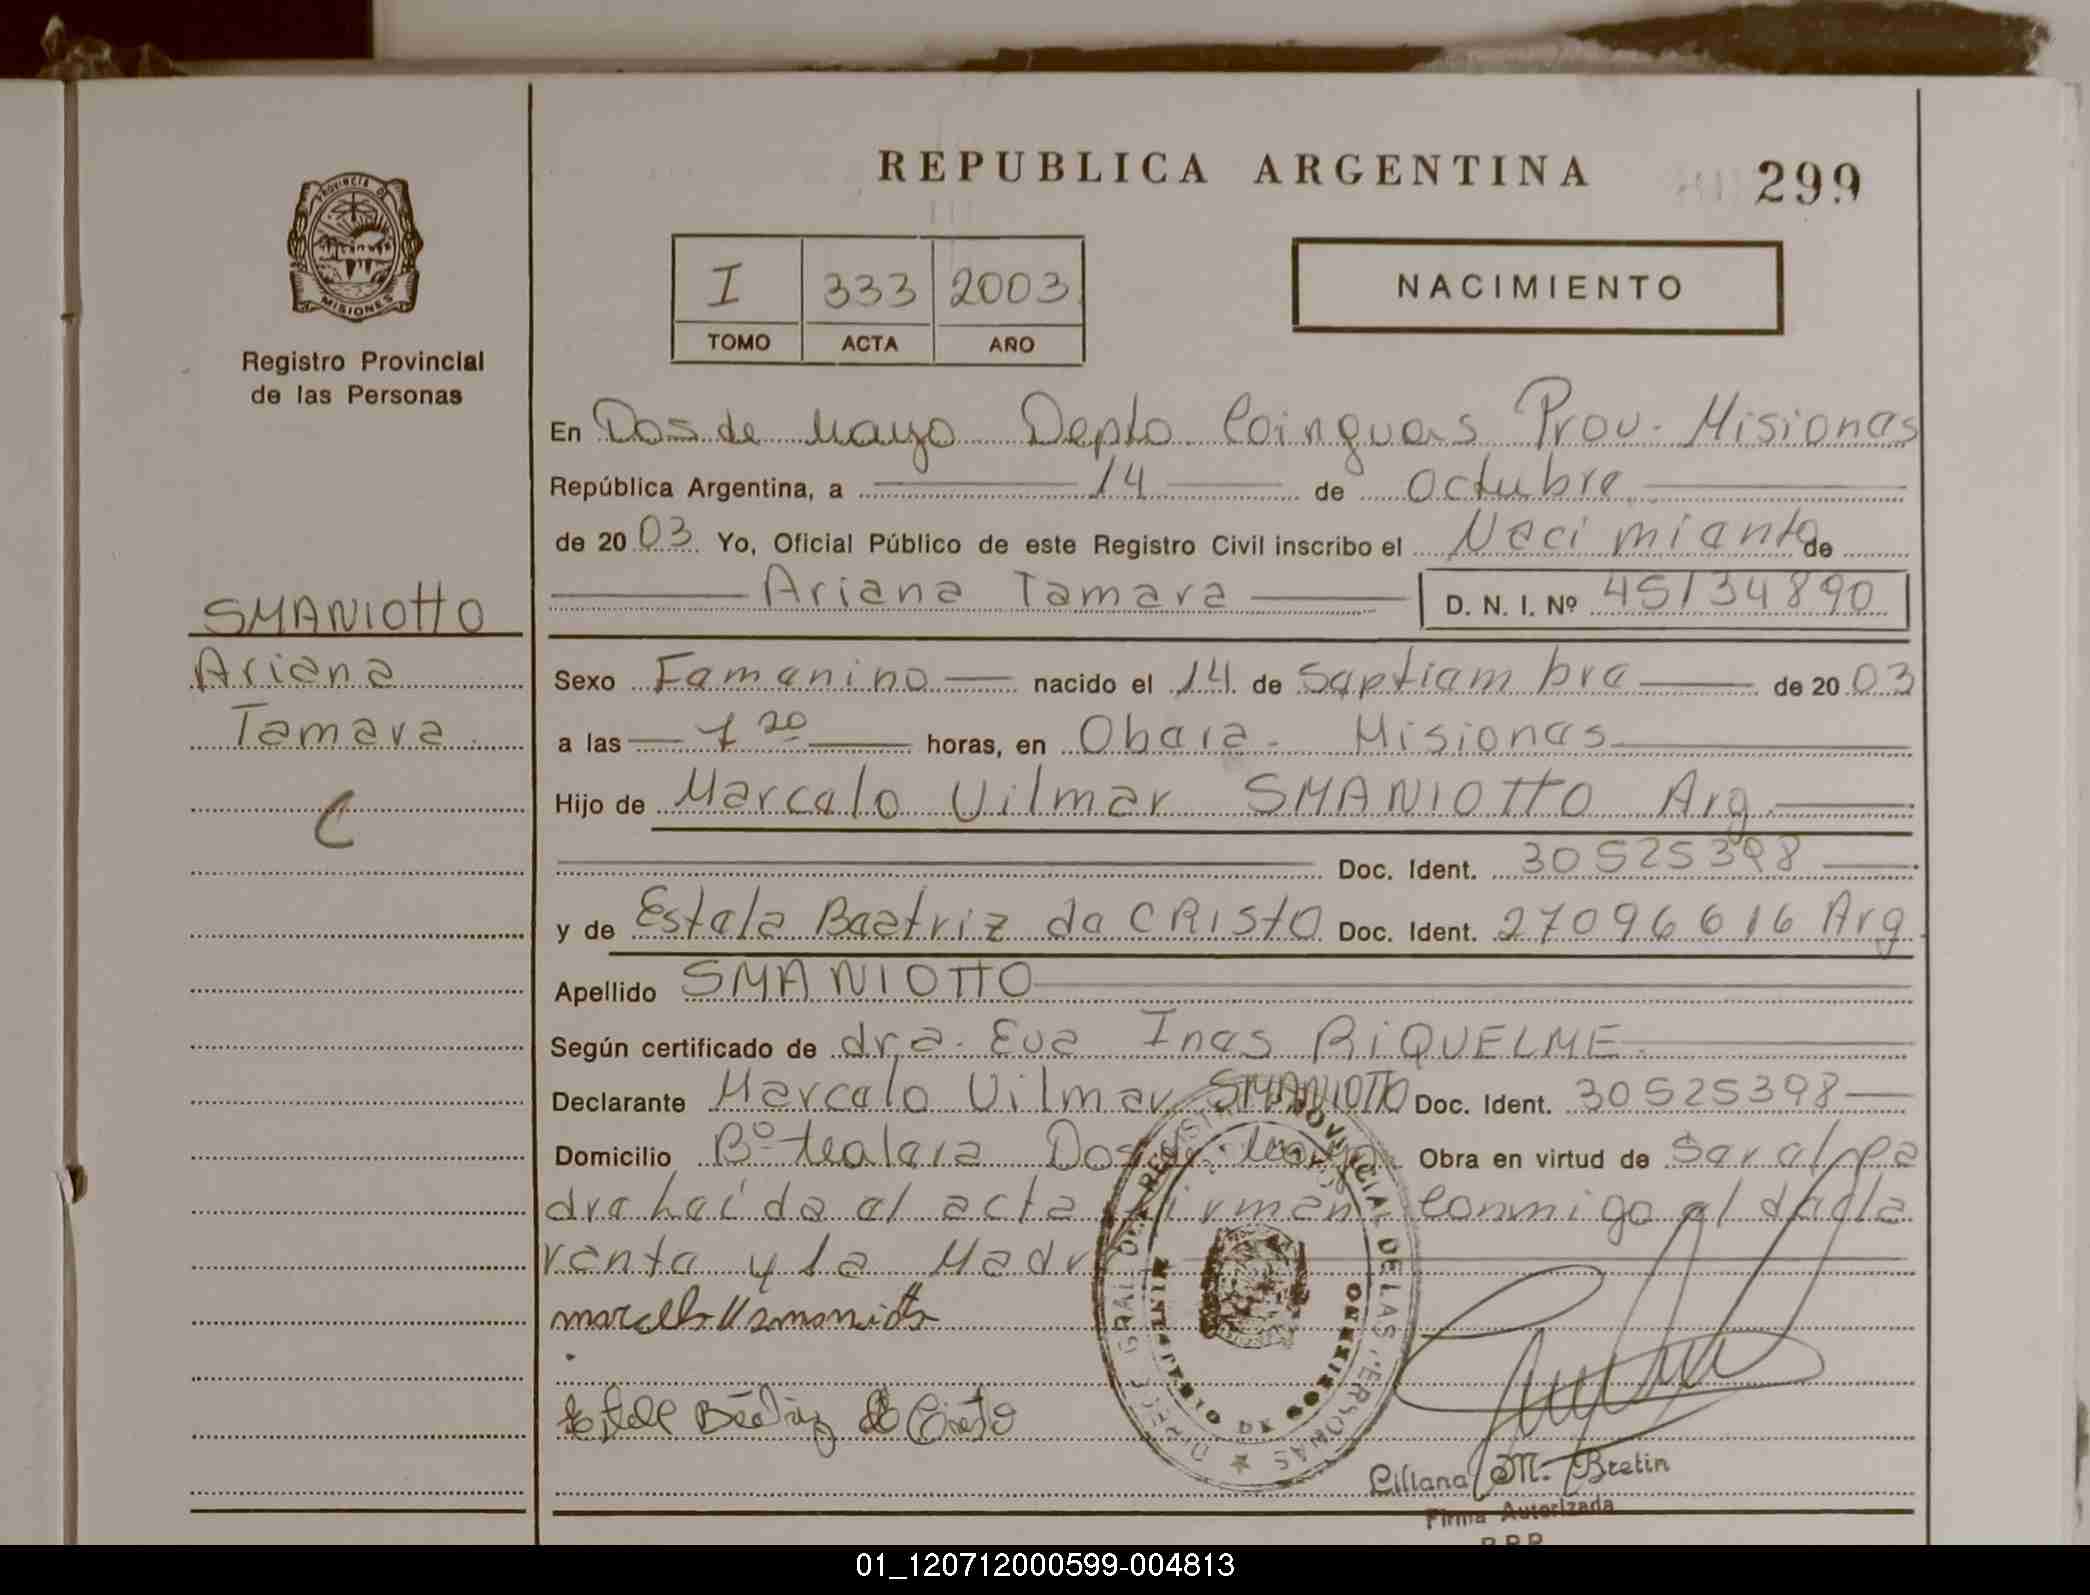 REPUBLICA ARGENTINA
299
PROVINCIA DE
MISIONES
Registro Provincial
de las Personas
I 333 2003
TOMO ACTA AÑO
NACIMIENTO
En Dos de Mayo Depto Cainguas Prov. Misiones
República Argentina, a 14 de Octubre
de 2003 Yo, Oficial Público de este Registro Civil inscribo el Nacimiento de
Ariana Tamara D. N. I. Nº 45134890
SMANIOTTO
Ariana
Tamara
Sexo Femenino nacido el 14 de Septiembre de 2003
a las 7 20 horas, en Obera - Misiones
Hijo de Marcelo Vilmar SMANIOTTO Arg.
Doc. Ident. 30525398
y de Estela Beatriz da CRISTO Doc. Ident. 27096616 Arg
Apellido SMANIOTTO
Según certificado de dra. Eva Ines RIQUELME
Declarante Marcelo Vilmar SMANIOTTO Doc. Ident. 30525398
Domicilio Bº Obra en virtud de Ser el pa
dre Leída el acta firman conmigo el decla
rante y la Madre
Estela Beatriz de Cristo
REGISTRO PROVINCIAL DE LAS PERSONAS
MINISTERIO DE GOBIERNO
Liliana M. Bretin
Firma Autorizada
R.P.P.
01_120712000599-004813